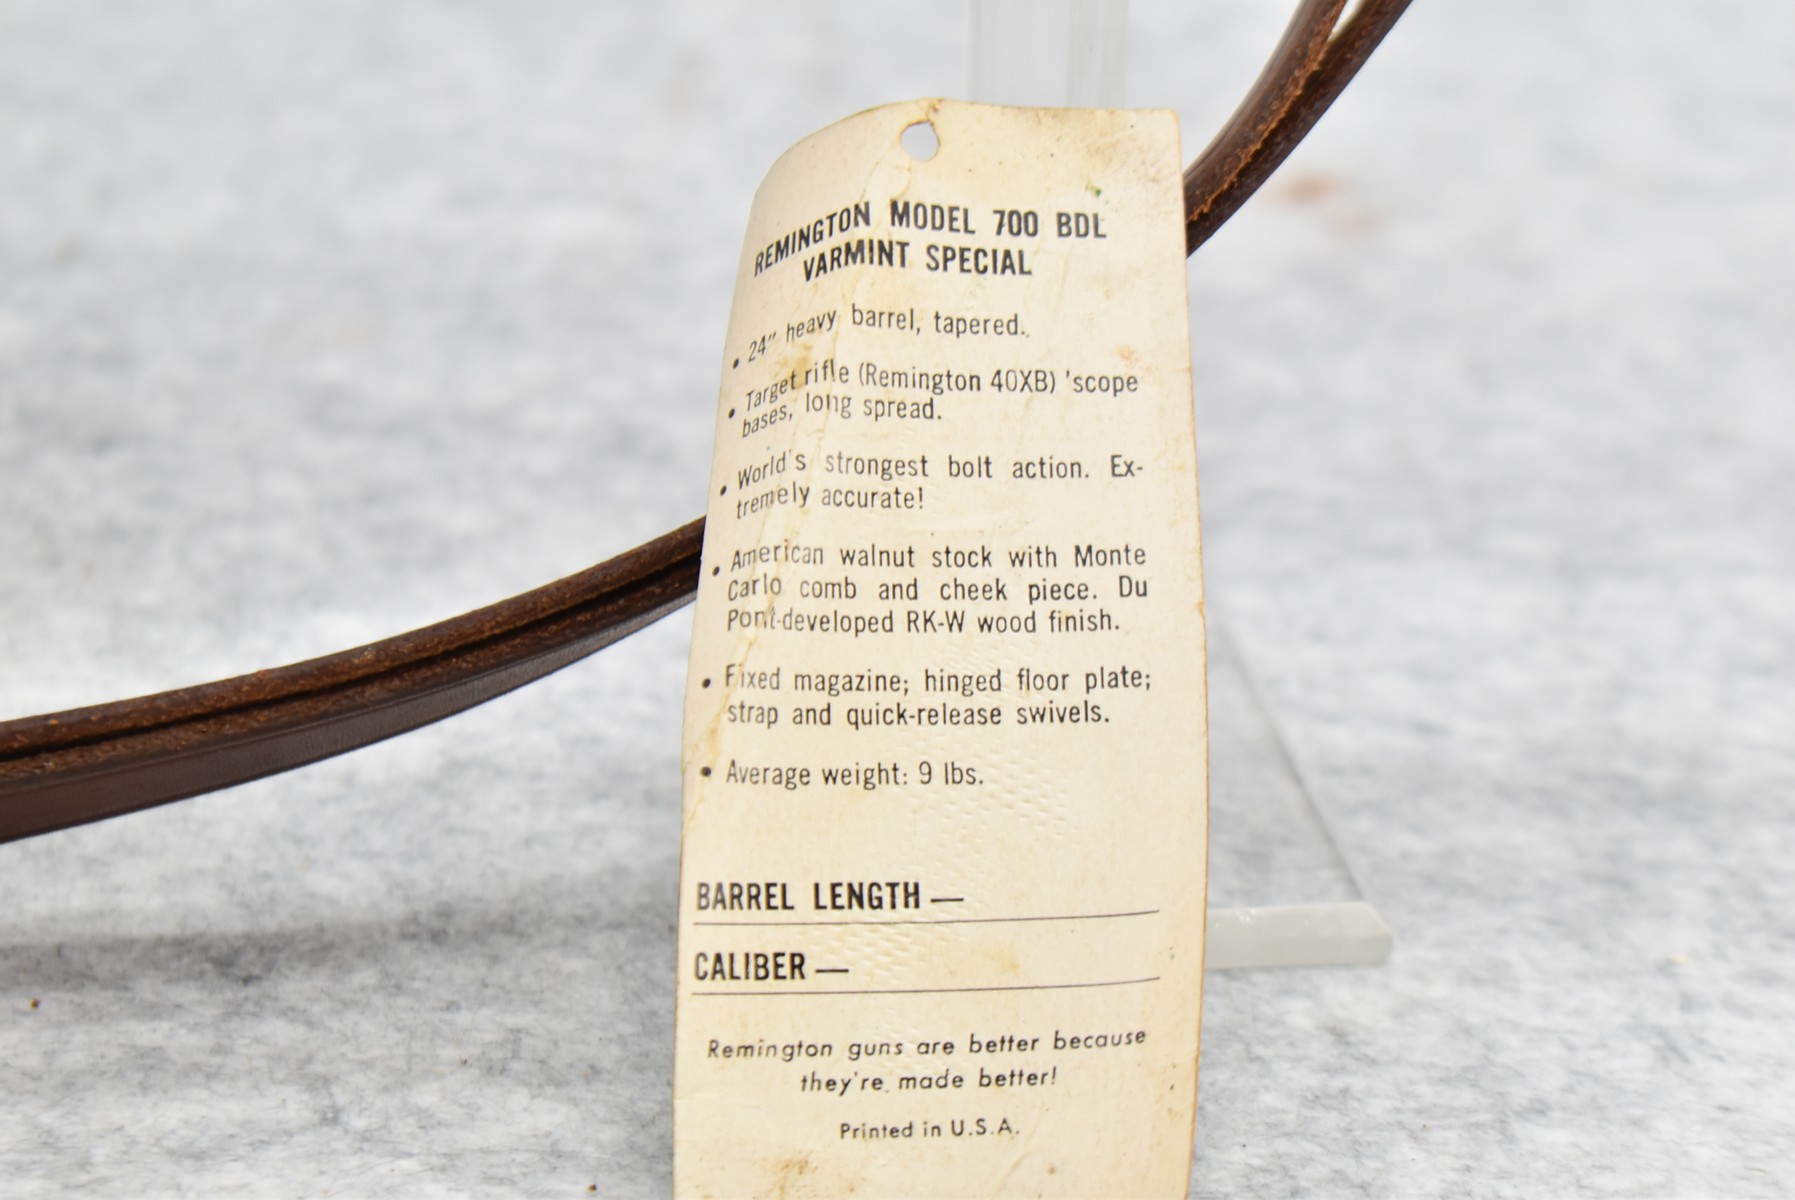 REMINGTON MODEL 700 BDL
VARMINT SPECIAL
• 24" heavy barrel, tapered.
• Target rifle (Remington 40XB) 'scope
bases, long spread.
• World's strongest bolt action. Ex-
tremely accurate!
• American walnut stock with Monte
Carlo comb and cheek piece. Du
Pont-developed RK-W wood finish.
• Fixed magazine; hinged floor plate;
strap and quick-release swivels.
• Average weight: 9 lbs.
BARREL LENGTH —
CALIBER —
Remington guns are better because
they're made better!
Printed in U.S.A.